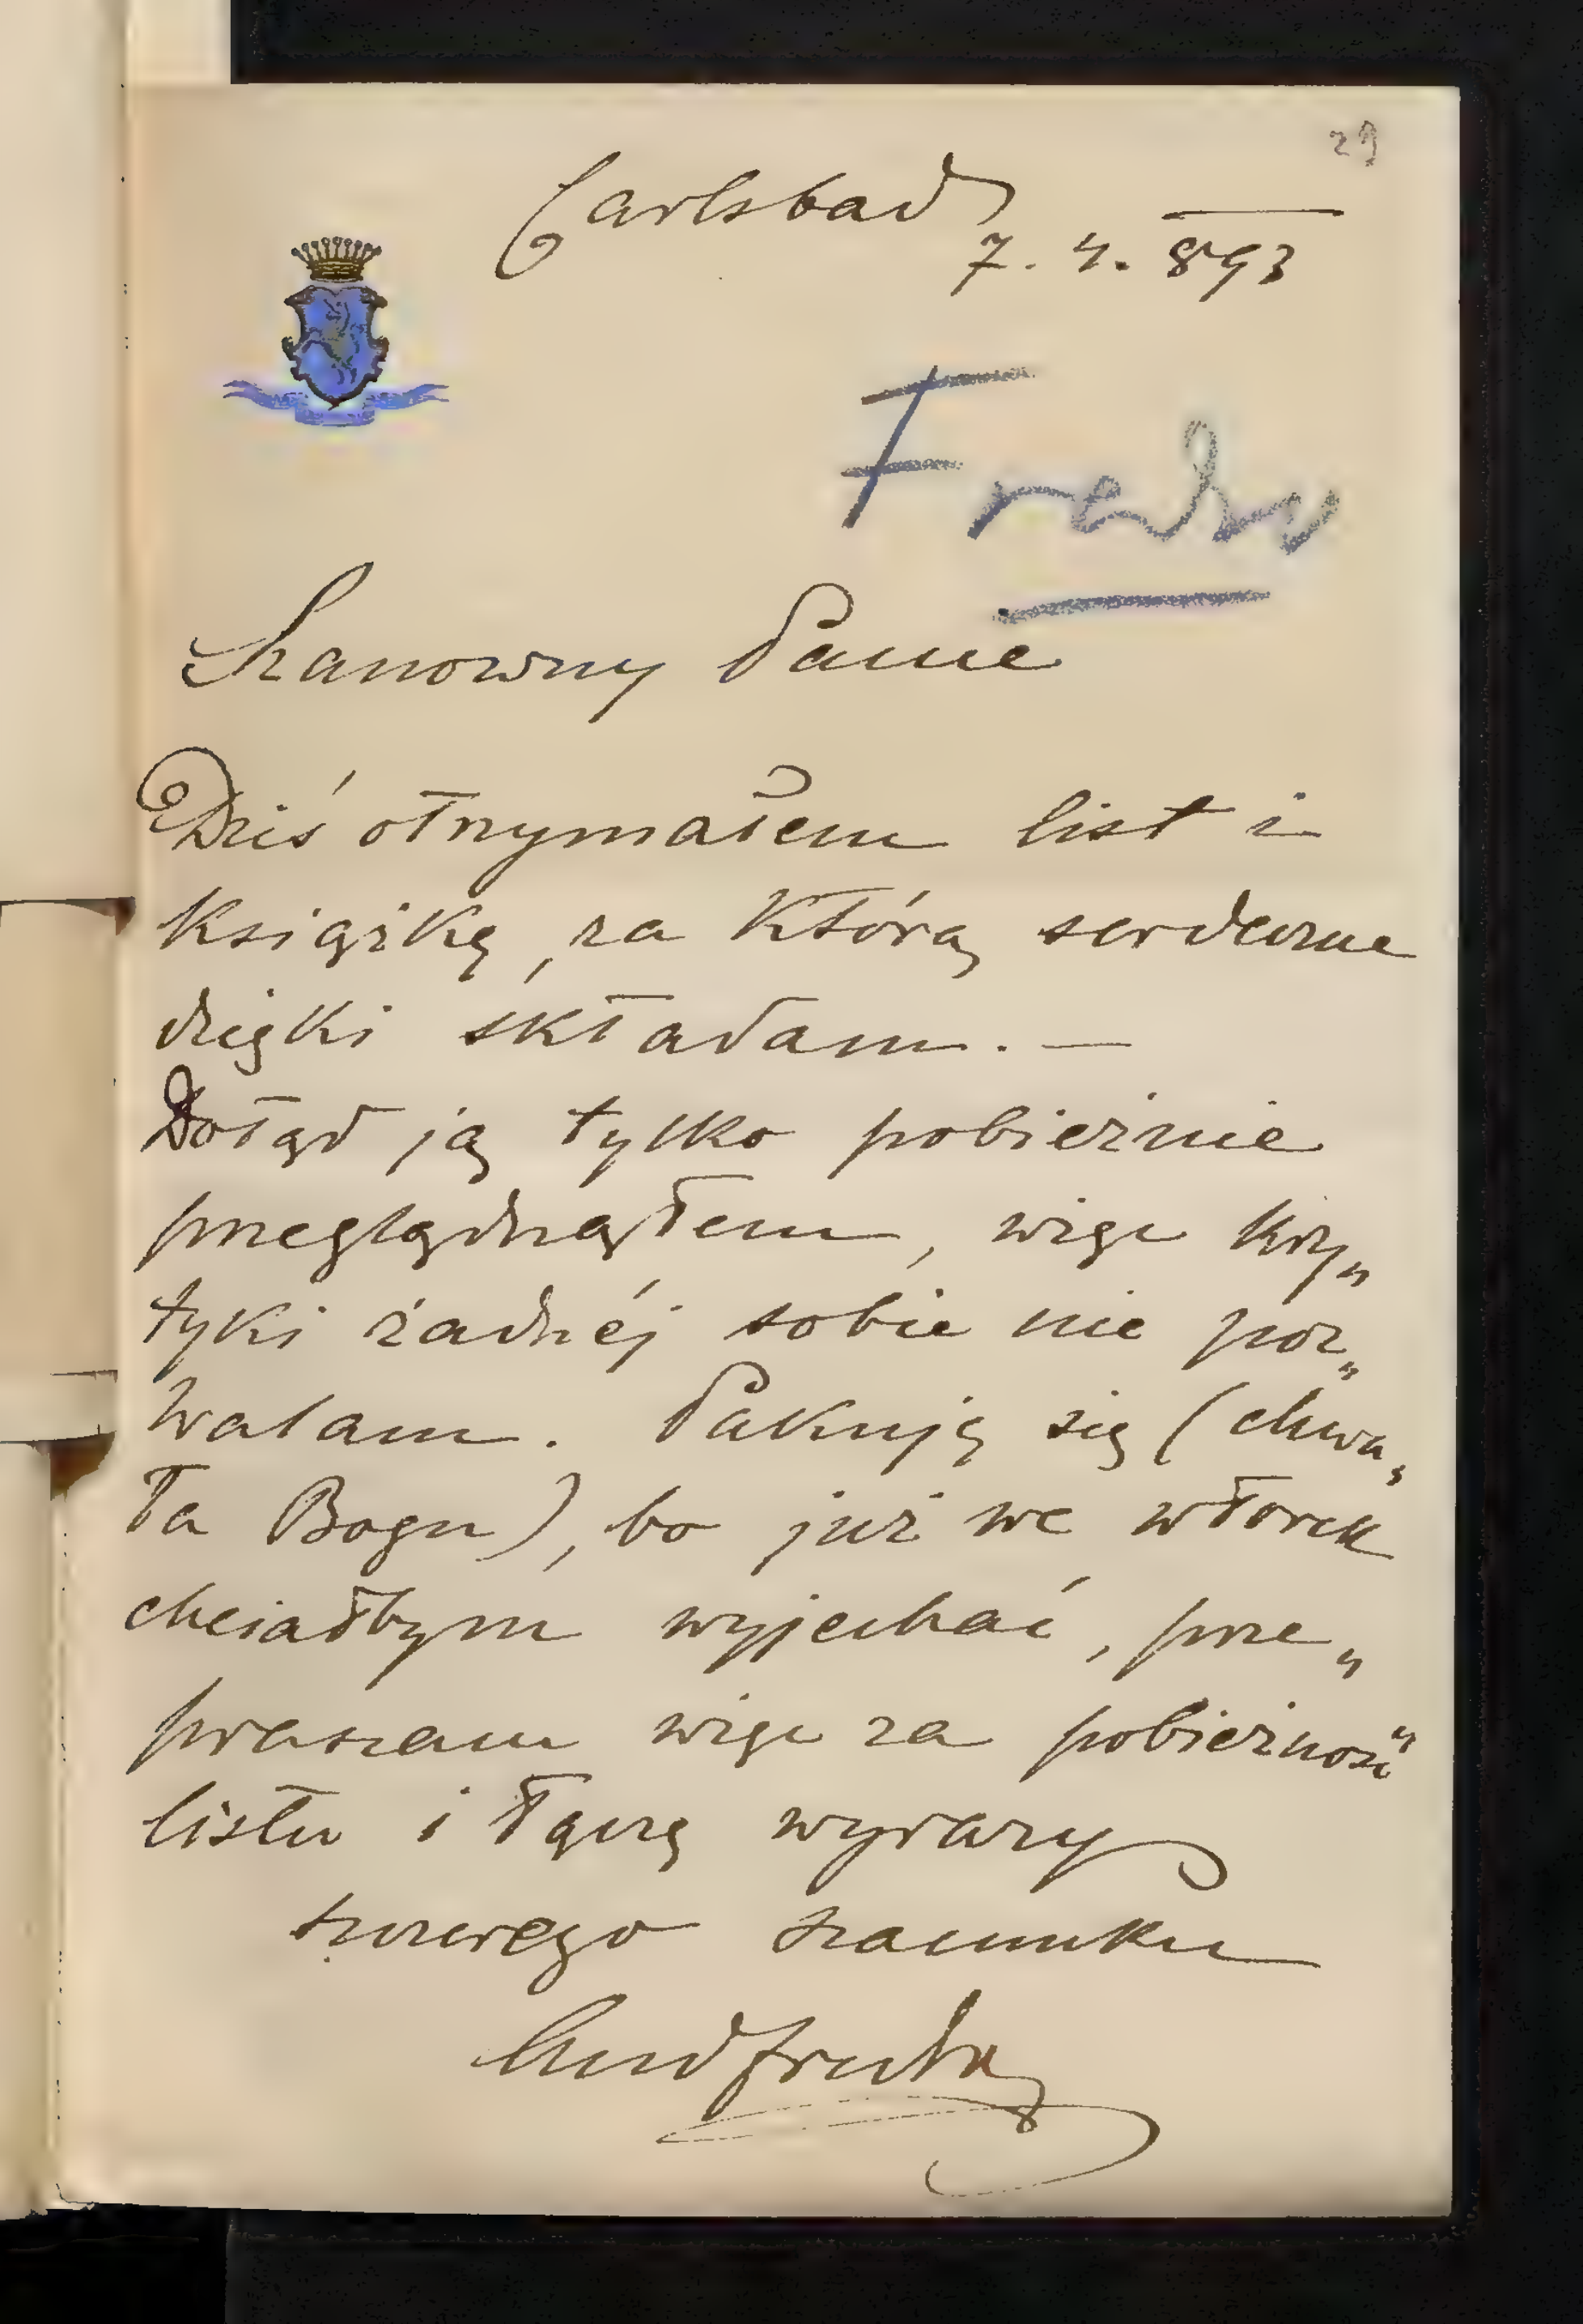 29
Carlsbad
7. 4. 893
Fredro
Szanowny Panie
Dziś otrzymałem list i
książkę, za którą serdeczne
dzięki składam. —
Dotąd ją tylko pobieżnie
przeglądnąłem, więc kry„
tyki żadnéj sobie nie poz„
walam. Pakuję się (chwa„
ła Bogu), bo już we wtorek
chciałbym wyjechać, prze„
praszam więc za pobieżność
listu i łączę wyrazy
szczerego szacunku